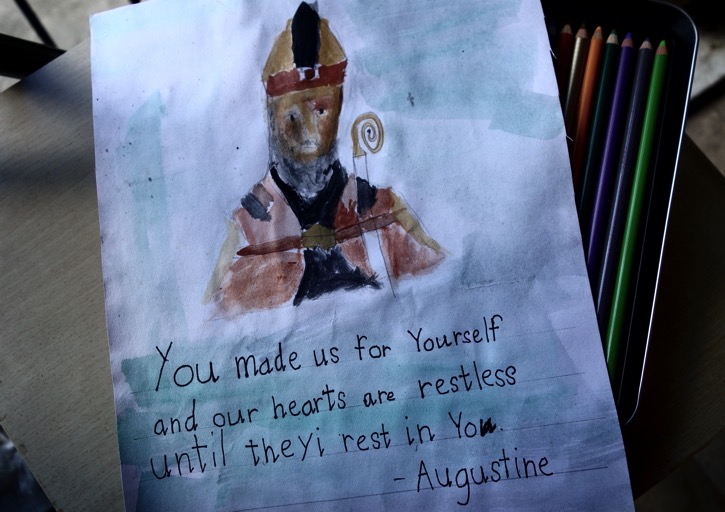 You made us for Yourself
and our hearts are restless
until theyi rest in You.
- Augustine